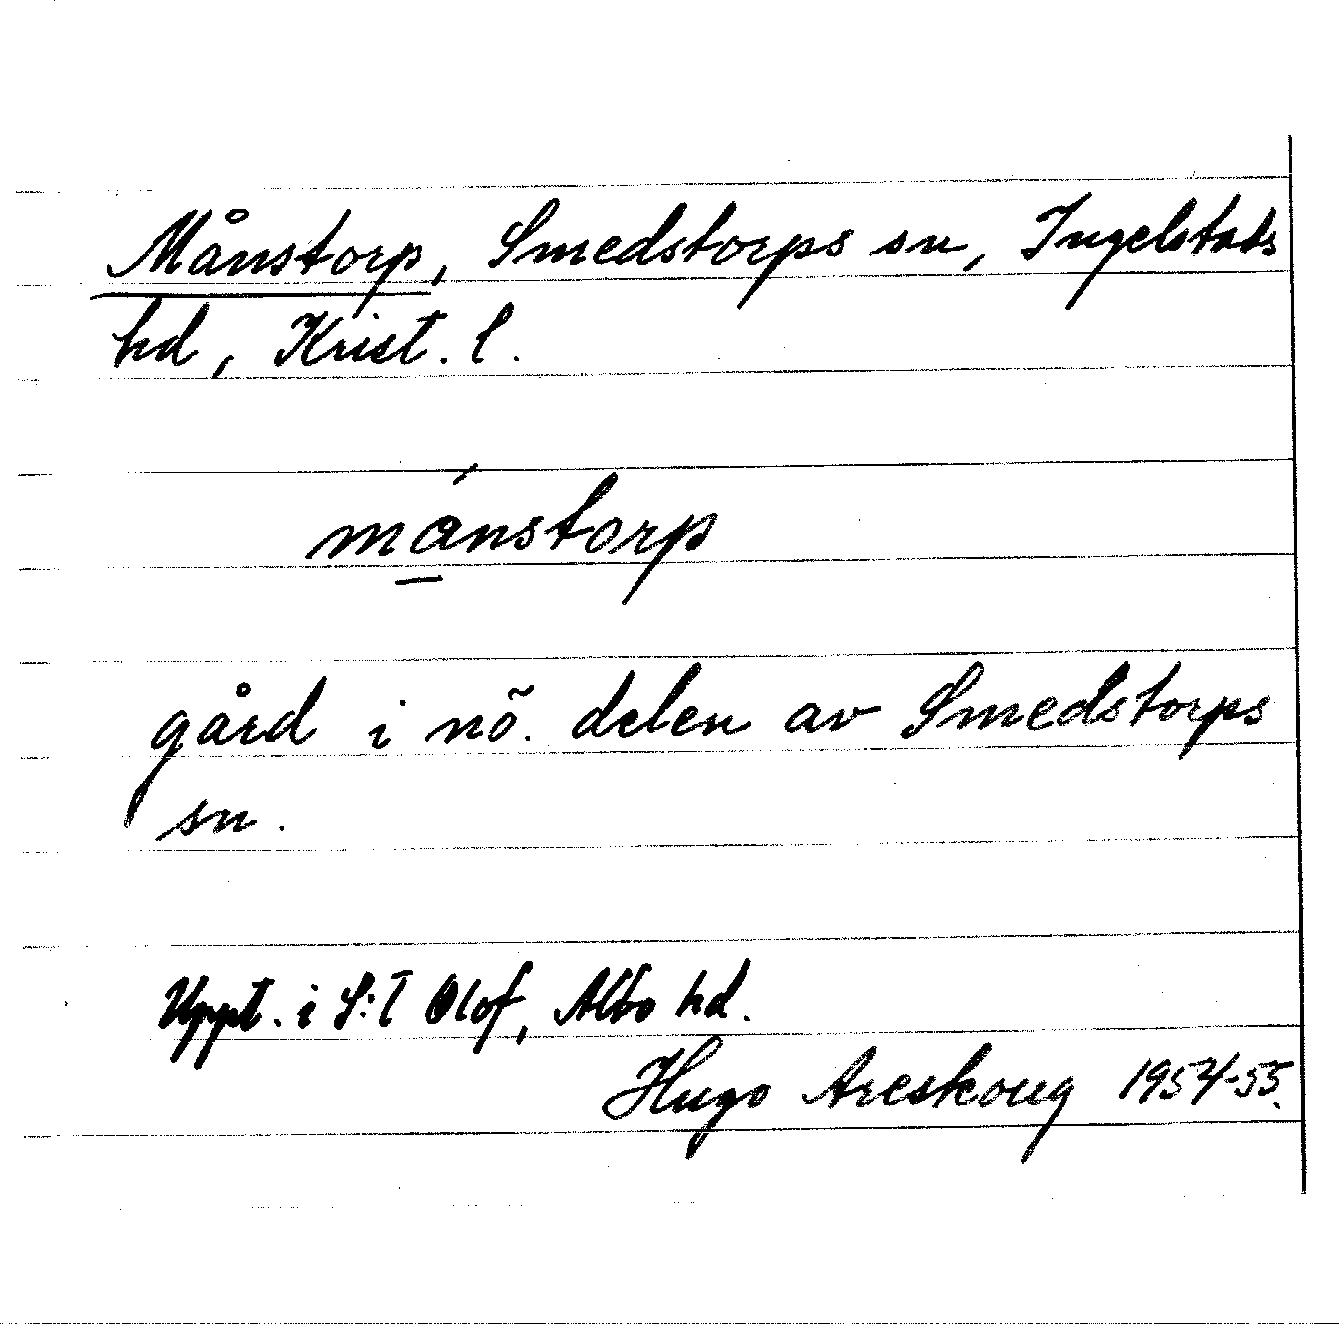 Månstorp, Smedstorps sn, Ingelstads
hd, Krist. l.
mánstorp
gård i nö. delen av Smedstorps
sn.
Uppt. i S:t Olof, Albo hd.
Hugo Areskoug 1954-55.